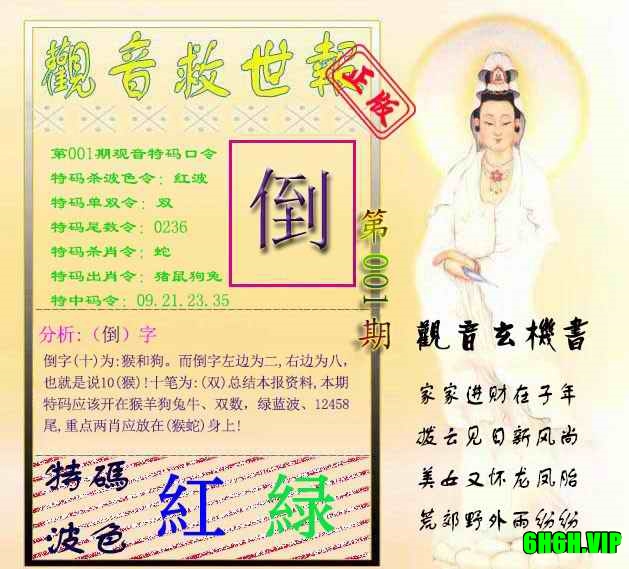 觀音救世報
正版
第001期观音特码口令
特码杀波色令：红波
特码单双令：双
特码尾数令：0236
特码杀肖令：蛇
特码出肖令：猪鼠狗兔
特中码令：09.21.23.35
倒
第001期
分析:（倒）字
倒字(十)为:猴和狗。而倒字左边为二,右边为八,
也就是说10(猴)!十笔为:(双)总结本报资料,本期
特码应该开在猴羊狗兔牛、双数，绿蓝波、12458
尾,重点两肖应放在(猴蛇)身上!
特碼
波色
紅 緑
觀音玄機書
家家进财在子年
拨云见日新风尚
美女又怀龙凤胎
荒郊野外雨纷纷
6H6H.VIP